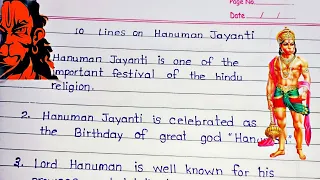 Page No.
Date / /
10 Lines on Hanuman Jayanti
Hanuman Jayanti is one of the
important festival of the hindu
religion.
2. Hanuman Jayanti is celebrated as
the Birthday of great god "Hanu
3. Lord Hanuman is well known for his